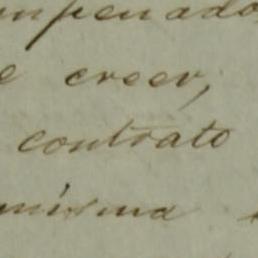 empeñado
e creer,
contrato
misma